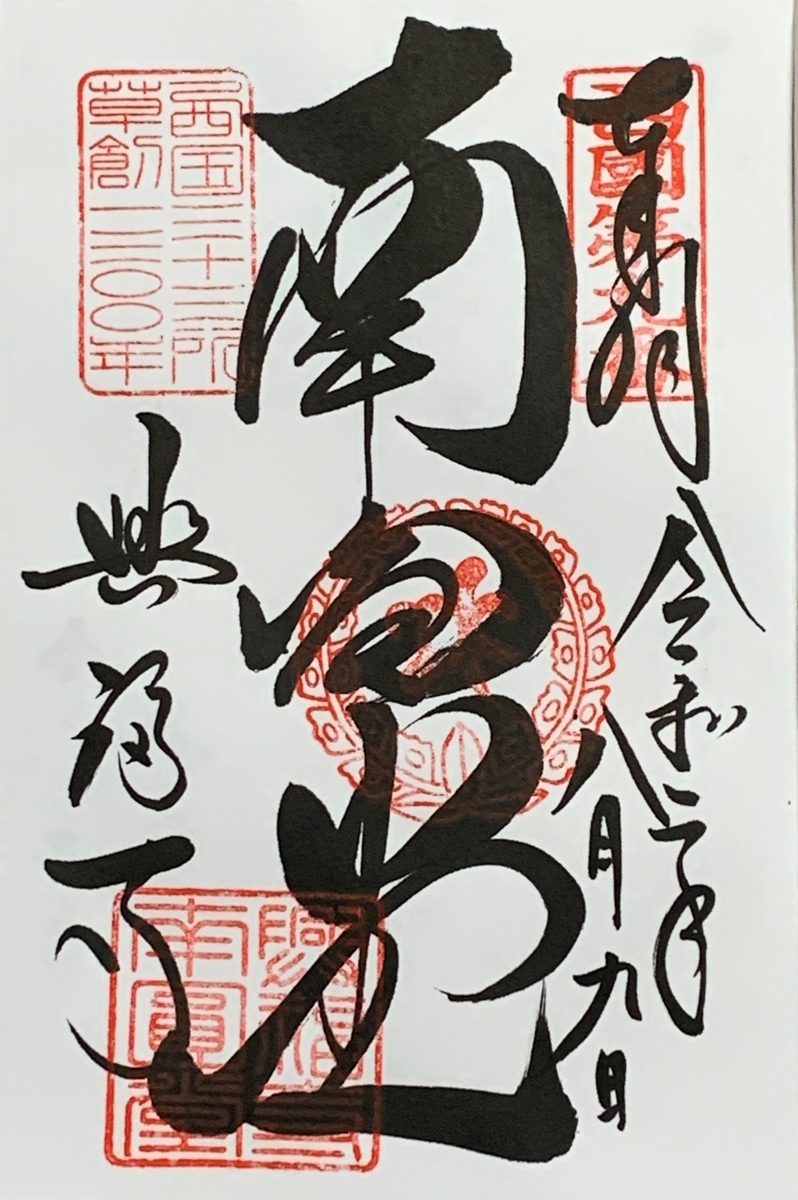 奉拝
西國第九番
令和二年
八月九日
南円堂
西国三十三所
草創一三〇〇年
興福寺
興福寺
南圓堂